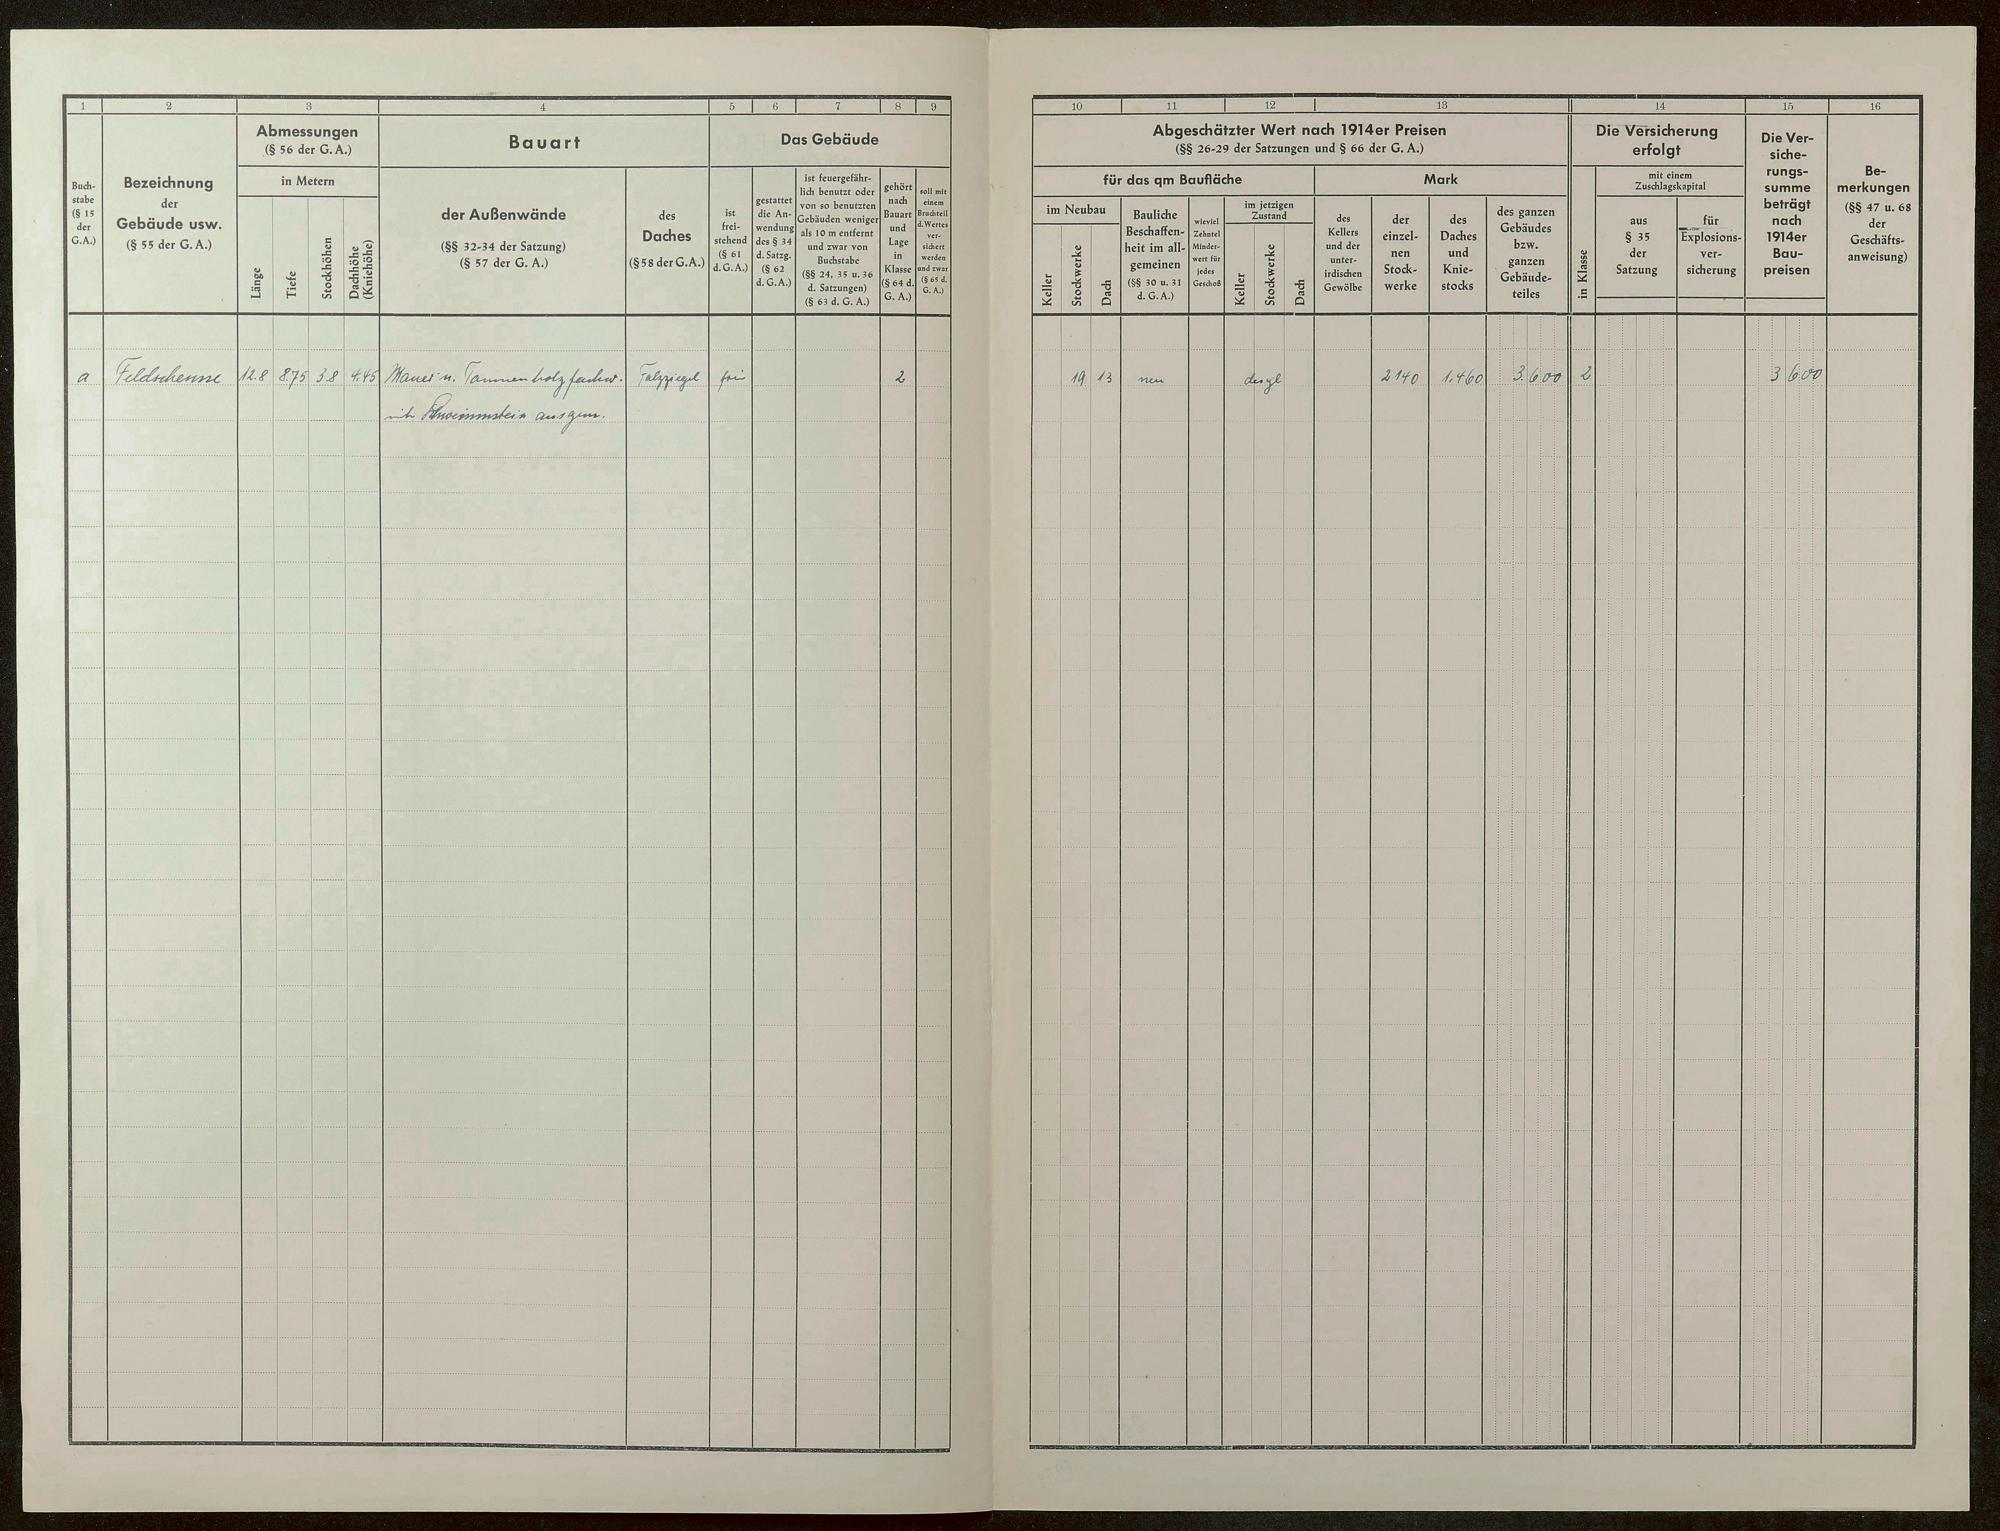 1 2 3 4 5 6 7 8 9
Buch-
stabe
(§ 15
der
G.A.)
Bezeichnung
der
Gebäude usw.
(§ 55 der G. A.)
Abmessungen
(§ 56 der G. A.)
in Metern
Länge
Tiefe
Stockhöhen
Dachhöhe
(Kniehöhe)
Bauart
der Außenwände
(§§ 32-34 der Satzung)
(§ 57 der G. A.)
des
Daches
(§ 58 der G. A.)
Das Gebäude
ist
frei-
stehend
(§ 61
d. G. A.)
gestattet
die An-
wendung
des § 34
d. Satzg.
(§ 62
d. G. A.)
ist feuergefähr-
lich benutzt oder
von so benutzten
Gebäuden weniger
als 10 m entfernt
und zwar von
Buchstabe
(§§ 24, 35 u. 36
d. Satzungen)
(§ 63 d. G. A.)
gehört
nach
Bauart
und
Lage
in
Klasse
(§ 64 d.
G. A.)
soll mit
einem
Bruchteil
d. Wertes
ver-
sichert
werden
und zwar
(§ 65 d.
G. A.)
a Feldscheune 12.8 8.75 3.8 4.45 Mauer u. Tannenholzfachw. Falzziegel frei 2
mit Schwemmstein ausgem.
10 11 12 13 14 15 16
Abgeschätzter Wert nach 1914er Preisen
(§§ 26-29 der Satzungen und § 66 der G. A.)
für das qm Baufläche
im Neubau
Keller
Stockwerke
Dach
Bauliche
Beschaffen-
heit im all-
gemeinen
(§§ 30 u. 31
d. G. A.)
wieviel
Zehntel
Minder-
wert für
jedes
Geschoß
im jetzigen
Zustand
Keller
Stockwerke
Dach
Mark
des
Kellers
und der
unter-
irdischen
Gewölbe
der
einzel-
nen
Stock-
werke
des
Daches
und
Knie-
stocks
des ganzen
Gebäudes
bzw.
ganzen
Gebäude-
teiles
Die Versicherung
erfolgt
in Klasse
mit einem
Zuschlagskapital
aus
§ 35
der
Satzung
für
Explosions-
ver-
sicherung
Die Ver-
siche-
rungs-
summe
beträgt
nach
1914er
Bau-
preisen
Be-
merkungen
(§§ 47 u. 68
der
Geschäfts-
anweisung)
19 13 neu desgl 2140 1.460 3.600 2 3 600